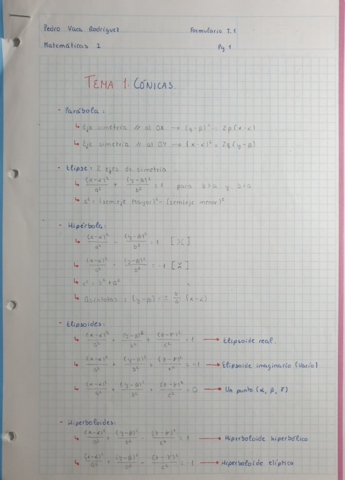 Pedro Vaca Rodríguez Formulario T.1
Matemáticas 2 Pg. 1
TEMA 1: CÓNICAS.
- Parábola:
↳ Eje simetría // al OX → (y-β)² = 2p(x-α)
↳ Eje simetría // al OY → (x-α)² = 2q(y-β)
- Elipse: 2 ejes de simetría
↳ (x-α)²/a² + (y-β)²/b² = 1 para
- Hipérbola:
↳ (x-α)²/a² - (y-β)²/b² = 1
↳ (x-α)²/a² - (y-β)²/b² = -1
↳ Asíntotas: (y-β) = ± b/a (x-α)
- Elipsoides:
↳ (x-α)²/a² + (y-β)²/b² + (z-γ)²/c² = 1 → Elipsoide real.
↳ (x-α)²/a² + (y-β)²/b² + (z-γ)²/c² = -1 → Elipsoide imaginario (Vacío)
↳ (x-α)²/a² + (y-β)²/b² + (z-γ)²/c² = 0 → Un punto (α, β, γ)
- Hiperboloides:
→ Hiperboloide hiperbólico
→ Hiperboloide elíptico